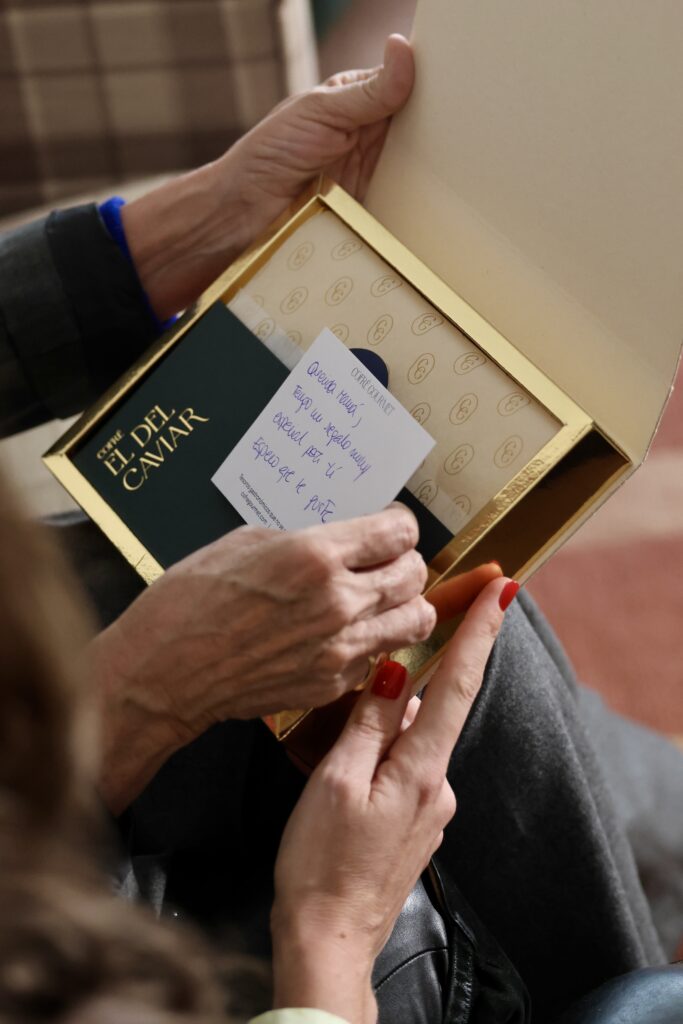 COFRÉ
EL DEL
CAVIAR
COFRÉ GOURMET
Querida Mamá,
Tengo un regalo muy
especial para tí
Espero que te guste
cofregourmet.com